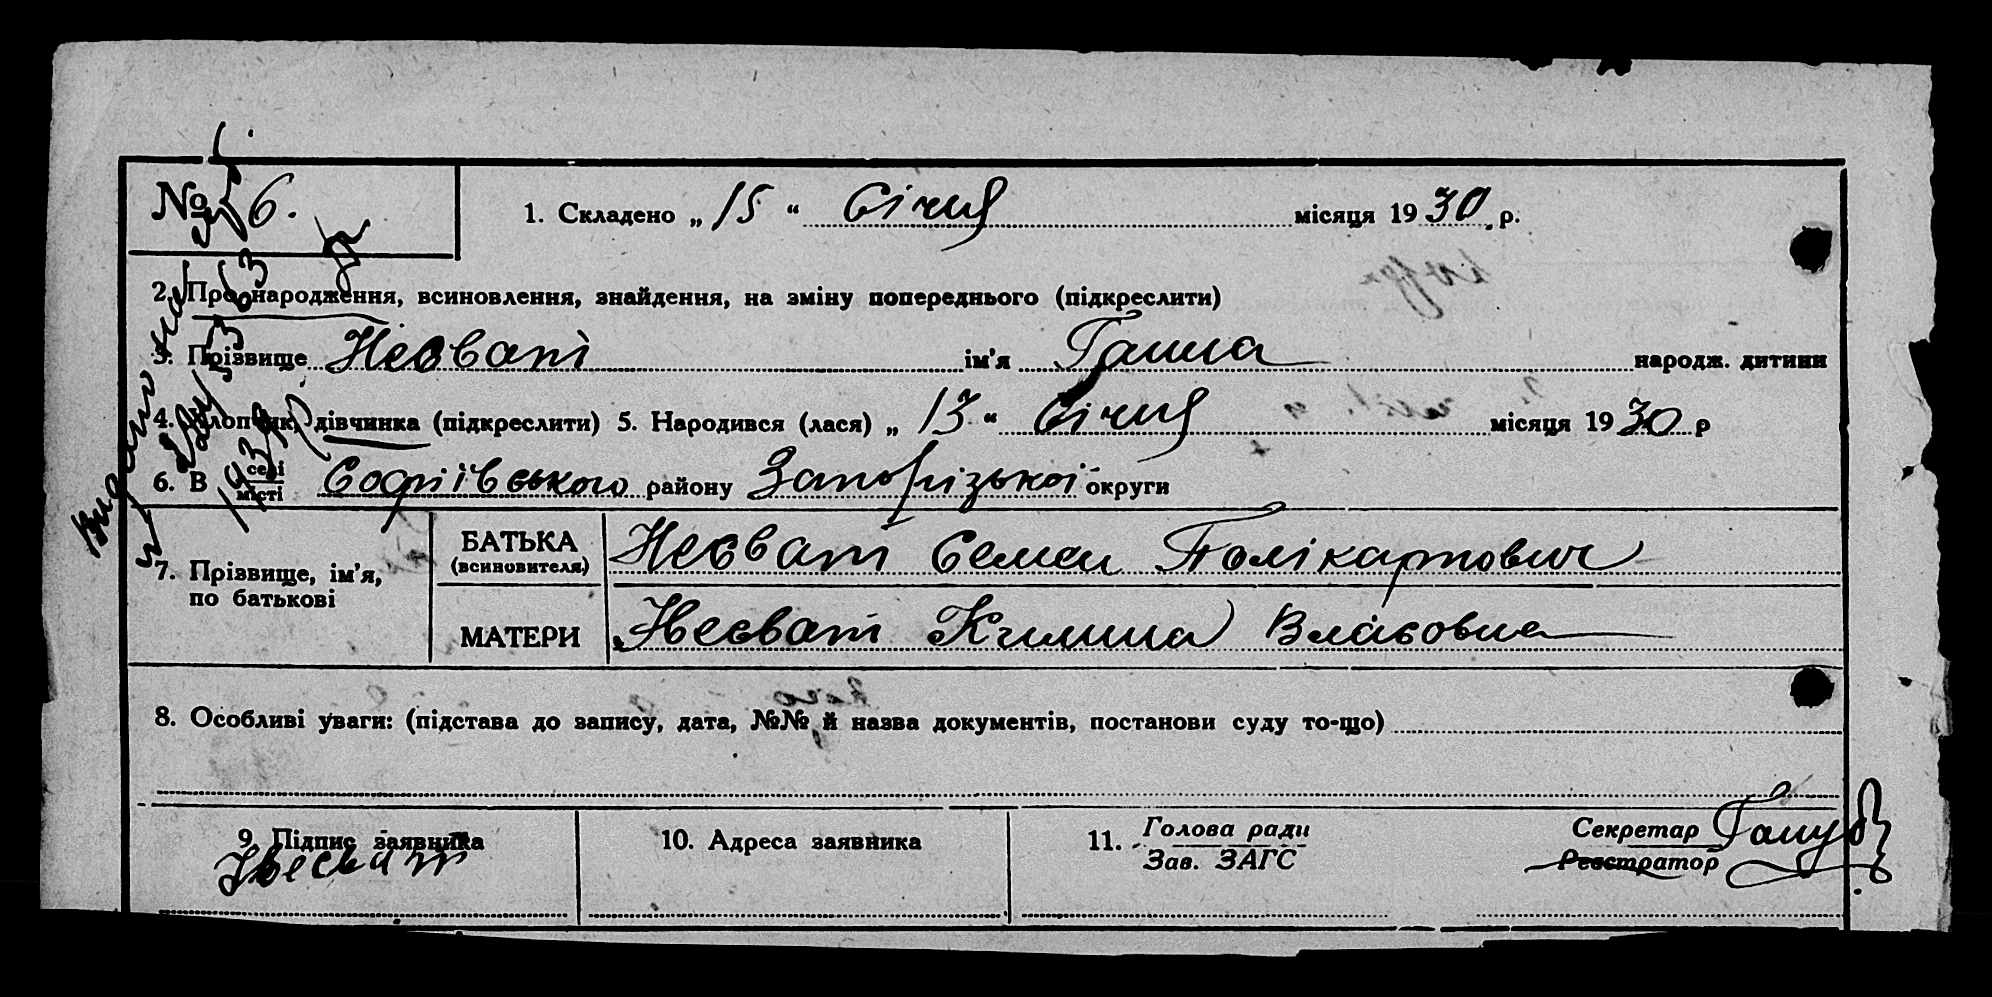 № 6.
1. Складено „ 15 “ Січня місяця 19 30 р.
2. Про народження, всиновлення, знайдення, на зміну попереднього (підкреслити)
3. Прізвище Несват ім'я Ганна народж. дитини
4. Хлопчик, дівчинка (підкреслити) 5. Народився (лася) „ 13 “ Січня місяця 19 30 р
6. В селі місті Софіївського району Запорізької округи
7. Прізвище, ім'я, по батькові
БАТЬКА (всиновителя) Несват Семен Полікарпович
МАТЕРИ Несват Килина Власовна
8. Особливі уваги: (підстава до запису, дата, №№ й назва документів, постанови суду то-що)
9. Підпис заявника
Несват
10. Адреса заявника
11. Голова ради
Зав. ЗАГС
Секретар
Реєстратор
Видано